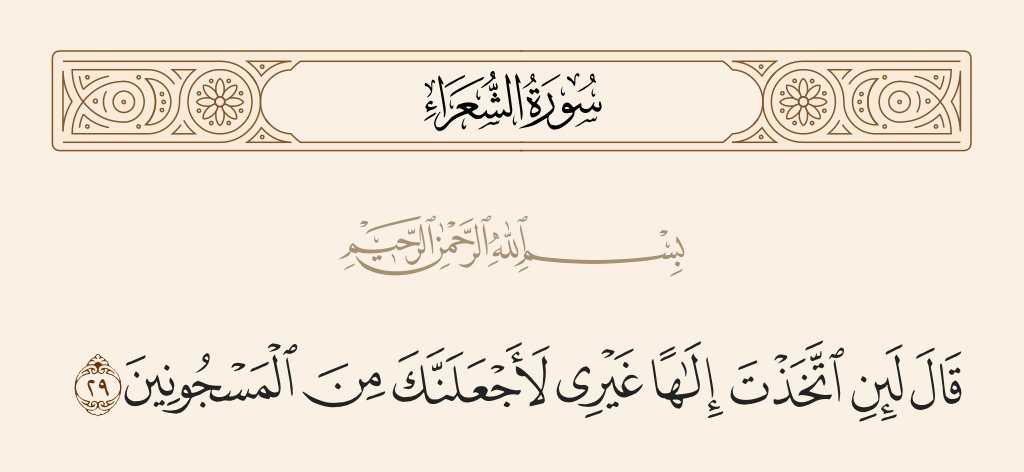 سُورَةُ الشُّعَرَاءِ
بِسْمِ ٱللَّهِ ٱلرَّحْمَٰنِ ٱلرَّحِيمِ
قَالَ لَئِنِ ٱتَّخَذْتَ إِلَٰهًا غَيْرِى لَأَجْعَلَنَّكَ مِنَ ٱلْمَسْجُونِينَ ٢٩